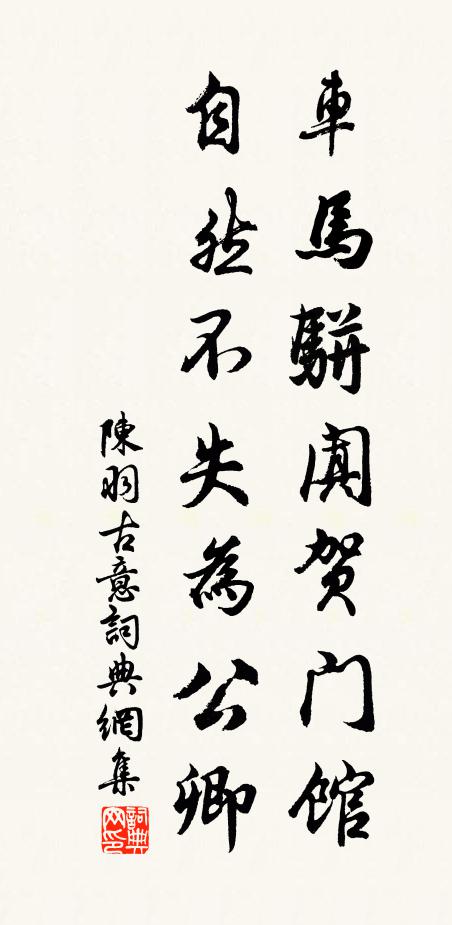 車馬駢闐賀门館
自然不失為公卿
陳羽古意詞典網集
詞典网印